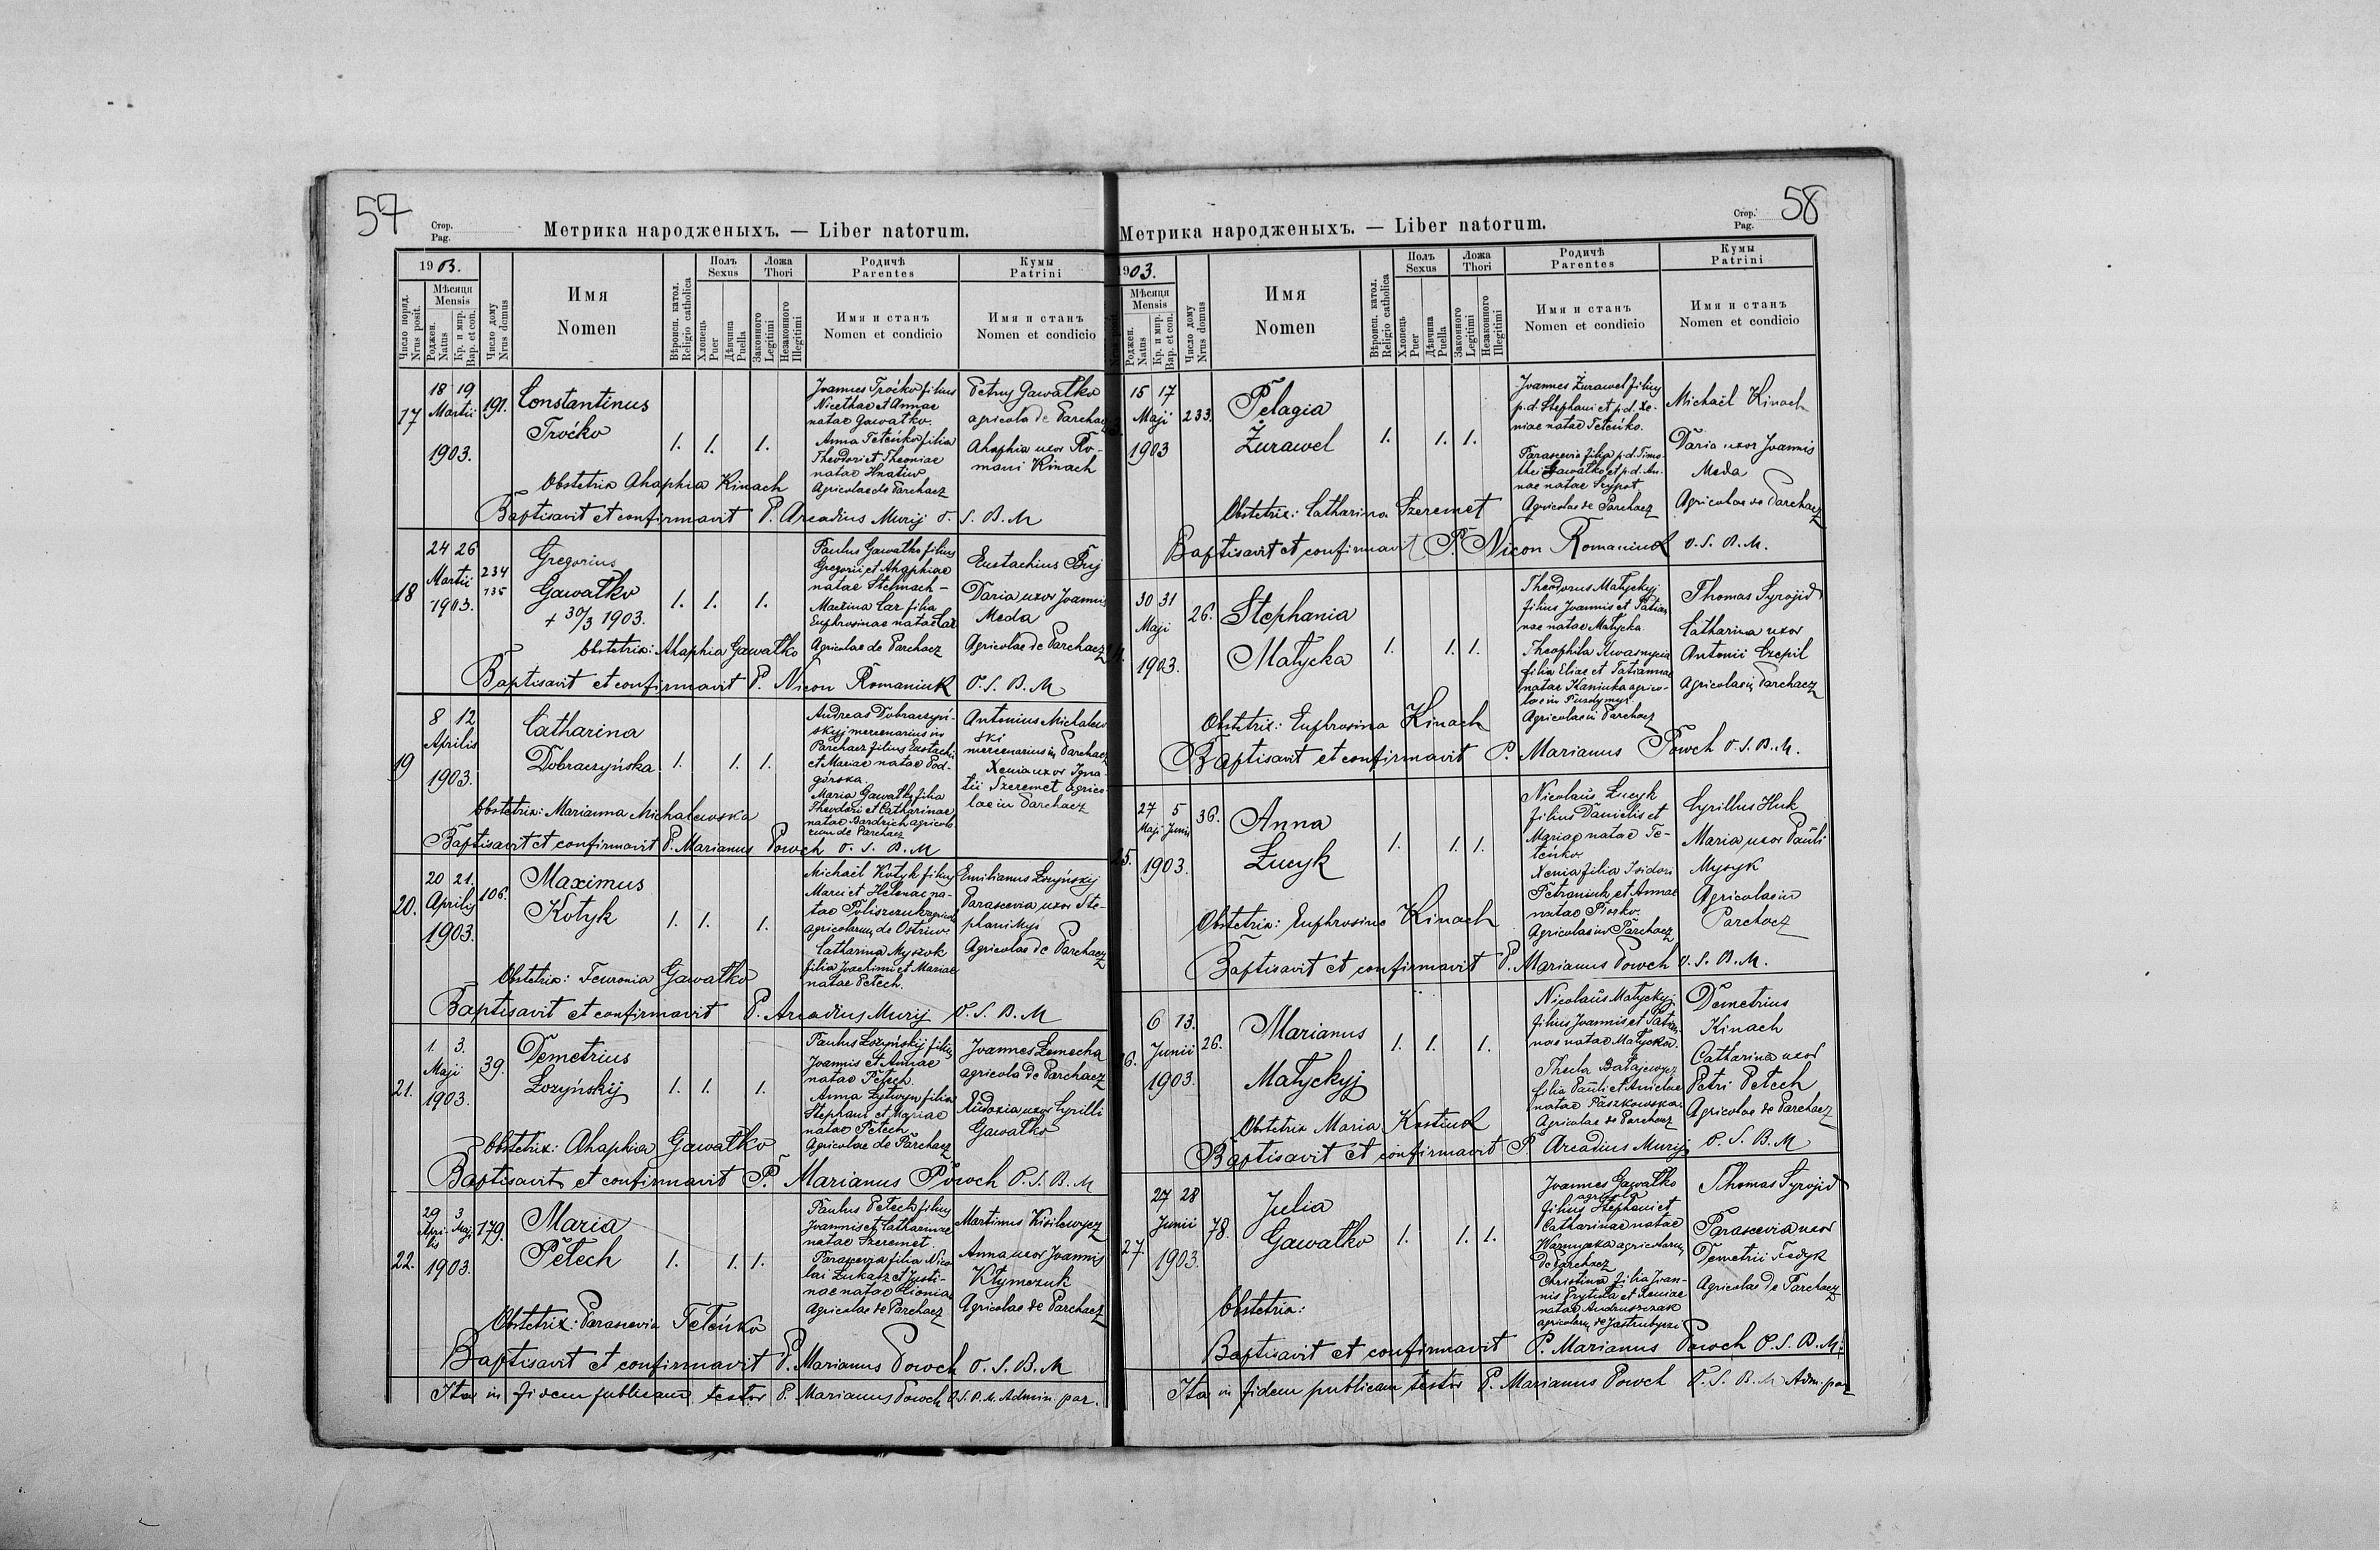 57
Стор.
Pag.
Метрика народженыхъ. — Liber natorum.
1903.
Число поряд.
Nrus posit.
Мѣсяця
Mensis
Роджен.
Natus
Кр. и мир.
Bap. et con.
Число дому
Nrus domus
Имя
Nomen
Вѣроисп. катол.
Religio catholica
Полъ
Sexus
Хлопець
Puer
Дѣвчина
Puella
Ложа
Thori
Законного
Legitimi
Незаконного
Illegitimi
Родичѣ
Parentes
Имя и станъ
Nomen et condicio
Кумы
Patrini
Имя и станъ
Nomen et condicio
17
18 19
Martii
1903.
191.
Constantinus
Troćko
1. 1. 1.
Joannes Troćko filius
Nicethae et Annae
natae Gawałko.
Anna Teteńko filia
Theodori et Theoniae
natae Hnatiw
Agricolae de Parchacz
Petrus Gawałko
agricola de Parchacz
Ahaphia uxor Ro-
mani Kinach
Obstetrix Ahaphia Kinach
Baptisavit et confirmavit P. Arcadius Muryj O. S. B. M
18
24 26
Martii
1903.
234
135
Gregorius
Gawałko
+ 30/3 1903.
1. 1. 1.
Paulus Gawałko filius
Gregorii et Ahaphiae
natae Stelmach -
Macrina Car filia
Euphrosinae natae Car
Agricolae de Parchacz
Eustachius Buj
Daria uxor Joannis
Meda
Agricolae de Parchacz
Obstetrix: Ahaphia Gawałko
Baptisavit et confirmavit P. Nicon Romaniuk O. S. B. M
19
8 12
Aprilis
1903.
Catharina
Dobraczyńska
1. 1. 1.
Andreas Dobraczyń-
skyj mercenarius in
Parchacz filius Eustachii
et Mariae natae Pod-
górska.
Maria Gawałko filia
Theodori et Catharinae
natae Bardrich agricola-
rum de Parchacz
Antonius Michalew
ski
mercenarius in Parchacz
Xenia uxor Igna-
tii Szeremet agrico-
lae in Parchacz
Obstetrix: Marianna Michalewska
Baptisavit et confirmavit P. Marianus Powch O. S. B. M
20.
20 21.
Aprilis
1903.
106.
Maximus
Kotyk
1. 1. 1.
Michaël Kotyk filius
Marci et Helenae na-
tae Poliszczuk
agricolarum de Ostriw.
Catharina Myszok
filia Joachimi et Mariae
natae Petech.
Emilianus Łozyńskij
Parascevia uxor Ste-
phani Mys
Agricolae de Parchacz
Obstetrix: Fewronia Gawałko
Baptisavit et confirmavit P. Arcadius Muryj O. S. B. M
21.
1. 3.
Maji
1903.
39.
Demetrius
Łozyńskij
1. 1. 1.
Paulus Łozyńskij filius
Joannis et Annae
natae Petech.
Anna Łytwyn filia
Stephani et Mariae
natae Petech
Agricolae de Parchacz
Joannes Łemecha
agricola de Parchacz
Eudoxia uxor Cyrilli
Gawałko
Obstetrix: Ahaphia Gawałko
Baptisavit et confirmavit P. Marianus Powch O. S. B. M
22.
29 3
Apri- Maji
lis
1903.
179.
Maria
Petech
1. 1. 1.
Paulus Petech filius
Joannis et Catharinae
natae Szeremet.
Parascevia filia Nico
lai Łukasz et Justi-
nae natae
Agricolae de Parchacz
Martinus Kisilewycz
Anna uxor Joannis
Kłymczuk
Agricolae de Parchacz
Obstetrix: Parascevia Teteńko
Baptisavit et confirmavit P. Marianus Powch O. S. B. M
Ita in fidem publicam testor P. Marianus Powch O. S. B. M. Admin. par.
58
Стор.
Pag.
Метрика народженыхъ. — Liber natorum.
1903.
Мѣсяця
Mensis
Роджен.
Natus
Кр. и мир.
Bap. et con.
Число дому
Nrus domus
Имя
Nomen
Вѣроисп. катол.
Religio catholica
Полъ
Sexus
Хлопець
Puer
Дѣвчина
Puella
Ложа
Thori
Законного
Legitimi
Незаконного
Illegitimi
Родичѣ
Parentes
Имя и станъ
Nomen et condicio
Кумы
Patrini
Имя и станъ
Nomen et condicio
3.
15 17
Maji
1903
233.
Pelagia
Żurawel
1. 1. 1.
Joannes Żurawel filius
p.d. Stephani et p.d. Xe-
niae natae Teteńko.
Parascevia filia p.d. Timo-
thei Gawałko et p.d. An-
nae natae Scypot
Agricolae de Parchacz
Michaël Kinach
Daria uxor Joannis
Meda
Agricolae de Parchacz
Obstetrix: Catharina Szeremet
Baptisavit et confirmavit P. Nicon Romaniuk O. S. B. M.
30 31
Maji
1903.
26.
Stephania
Matycka
1. 1. 1.
Theodorus Matyckyj
filius Joannis et Tatian
nae natae Matycka.
Theophila Kwasnycia
filia Eliae et Tatiannae
natae Kaniuka agrico-
lae in
Agricolae in Parchacz
Thomas Syrojid
Catharina uxor
Antonii Czepil
Agricolae in Parchacz
Obstetrix: Euphrosina Kinach
Baptisavit et confirmavit P. Marianus Powch O. S. B. M.
25.
27 5
Maji Junii
1903.
36.
Anna
Łucyk
1. 1. 1.
Nicolaüs Łucyk
filius Danielis et
Mariae natae Te-
teńko
Xenia filia Isidori
Petraniuk et Annae
natae Piosko.
Agricolae in Parchacz
Cyrillus Huk
Maria uxor Pauli
Mysyk
Agricolae in
Parchacz
Obstetrix: Euphrosine Kinach
Baptisavit et confirmavit P. Marianus Powch O. S. B. M.
6.
6 13.
Junii
1903.
26.
Marianus
Matyckyj
1. 1. 1.
Nicolaüs Matyckyj
filius Joannis et Tatian
nae natae Matycka.
Thecla Bałajewycz
filia Pauli et Anielae
natae Paszkowska.
Agricolae de Parchacz
Demetrius
Kinach
Catharina uxor
Petri Petech
Agricolae de Parchacz
Obstetrix Maria Kostiuk
Baptisavit et confirmavit P. Arcadius Muryj O. S. B. M
27
27 28
Junii
1903.
78.
Julia
Gawałko
1. 1. 1.
Joannes Gawałko
agricola
filius Stephani et
Catharinae natae
agricolarum
de Parchacz
Christina filia Joan-
nis Prytuła et Xeniae
natae Andruszczak
agricolarum de Jastrubyczi
Thomas Syrojid
Parascevia uxor
Demetrii Fedyk
Agricolae de Parchacz
Obstetrix:
Baptisavit et confirmavit P. Marianus Powch O. S. B. M.
Ita in fidem publicam testor P. Marianus Powch O. S. B. M. Adm. par